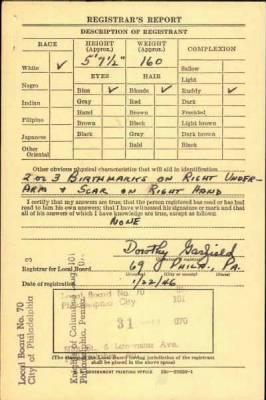 REGISTRAR'S REPORT
DESCRIPTION OF REGISTRANT
RACE
HEIGHT (Approx.)
WEIGHT (Approx.)
COMPLEXION
5' 7½"
160
White ✓
EYES
HAIR
Sallow
Light
Negro
Blue ✓
Blonde ✓
Ruddy ✓
Indian
Gray
Red
Dark
Hazel
Brown
Freckled
Filipino
Brown
Black
Light brown
Japanese
Black
Gray
Dark brown
Other
Oriental
Bald
Black
Other obvious physical characteristics that will aid in identification
2 OR 3 BIRTHMARKS ON RIGHT UNDER-
ARM & SCAR ON RIGHT HAND
I certify that my answers are true; that the person registered has read or has had
read to him his own answers; that I have witnessed his signature or mark and that
all of his answers of which I have knowledge are true, except as follows:
NONE
Dorothy Garfield
Registrar for Local Board
69
PHILA., PA.
(City or county)
(State)
1/22/46
Local Board No. 70
City of Philadelphia
Local Board No. 70
Philadelphia City
101
31
070
Knights of Columbus
Philadelphia, Penna.
Ave.
(The stamp of the Local Board having jurisdiction of the registrant
shall be placed in the above space.)
GOVERNMENT PRINTING OFFICE